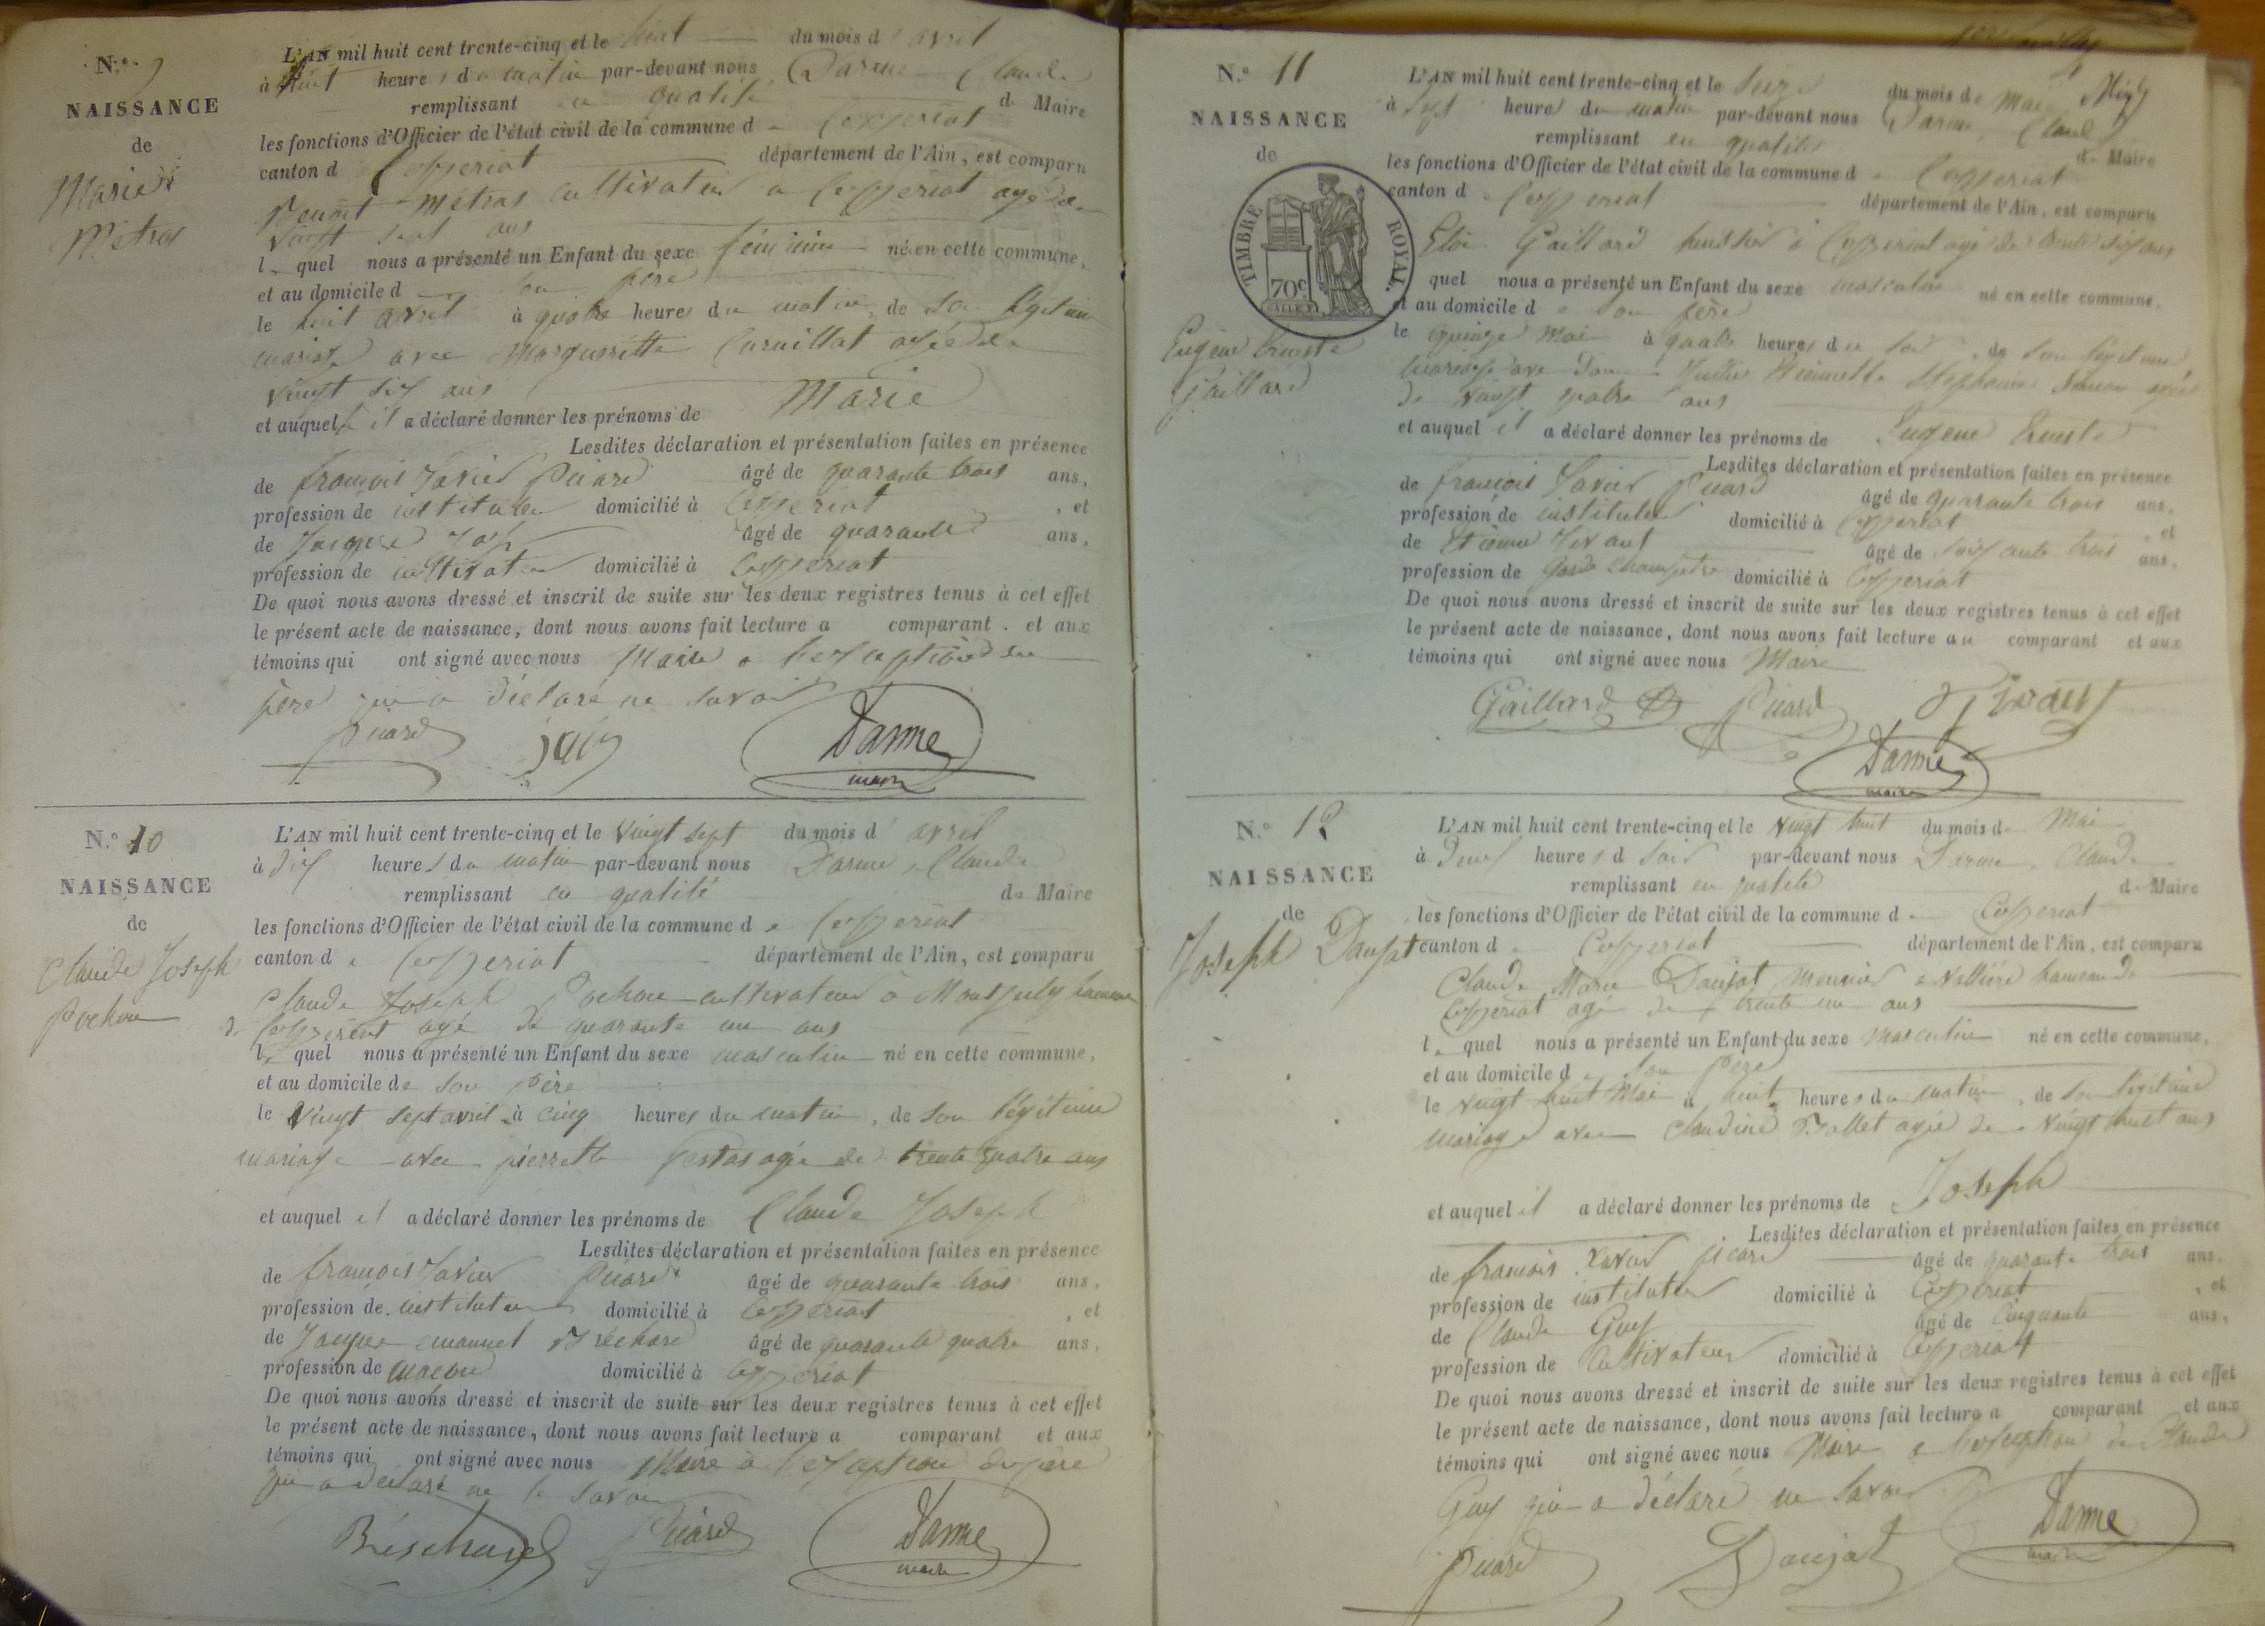 N.º 9
NAISSANCE
de
Marie
Métras
L'AN mil huit cent trente-cinq et le huit du mois d'avril
à huit heures du matin par-devant nous Darme Claude
remplissant en qualité de Maire
les fonctions d'Officier de l'état civil de la commune de Ceyzeriat
canton de Ceyzeriat département de l'Ain, est comparu
Métras cultivateur a Ceyzeriat agé de
vingt sept ans
le quel nous a présenté un Enfant du sexe féminin né en cette commune,
et au domicile de son père
le huit avril à quatre heures du matin, de son légitime
mariage avec Margueritte Curvillat agée de
vingt six ans
et auquel il a déclaré donner les prénoms de Marie
Lesdites déclaration et présentation faites en présence
de françois Xavier Picard âgé de quarante trois ans,
profession de instituteur domicilié à Ceyzeriat, et
de Jacques Joly âgé de quarante ans,
profession de cultivateur domicilié à Ceyzeriat
De quoi nous avons dressé et inscrit de suite sur les deux registres tenus à cet effet
le présent acte de naissance, dont nous avons fait lecture a comparant. et aux
témoins qui ont signé avec nous Maire a l'exception du
père qui a déclaré ne savoir
Picard Joly Darme
maire
N.º 10
NAISSANCE
de
Claude Joseph
Pochon
L'AN mil huit cent trente-cinq et le vingt sept du mois d'avril
à dix heures du matin par-devant nous Darme, Claude
remplissant en qualité de Maire
les fonctions d'Officier de l'état civil de la commune de Ceyzeriat
canton de Ceyzeriat département de l'Ain, est comparu
Claude Joseph Pochon cultivateur à Montjuly hameau
de Ceyzeriat agé de quarante un ans
le quel nous a présenté un Enfant du sexe masculin né en cette commune,
et au domicile de son père
le vingt sept avril à cinq heures du matin, de son légitime
mariage avec pierrette agée de trente quatre ans
et auquel il a déclaré donner les prénoms de Claude Joseph
Lesdites déclaration et présentation faites en présence
de françois Xavier Picard âgé de quarante trois ans,
profession de instituteur domicilié à Ceyzeriat, et
de Jacques emanuel Bréchard âgé de quarante quatre ans,
profession de macon domicilié à Ceyzeriat
De quoi nous avons dressé et inscrit de suite sur les deux registres tenus à cet effet
le présent acte de naissance, dont nous avons fait lecture a comparant et aux
témoins qui ont signé avec nous Maire à l'exception du père
qui a déclaré ne le savoir
Bréschard Picard Darme
maire
N.º 11
NAISSANCE
de
TIMBRE ROYAL.
70c
Eugène Erneste
Gaillard
L'AN mil huit cent trente-cinq et le seize du mois de Mai
à sept heures du matin par-devant nous Darme, Claude
remplissant en qualité de Maire
les fonctions d'Officier de l'état civil de la commune de Ceyzeriat
canton de Ceyzeriat département de l'Ain, est comparu
Eloi Gaillard huissier à Ceyzeriat agé de trente six ans
quel nous a présenté un Enfant du sexe masculin né en cette commune.
et au domicile de son père
le quinze Mai à quatre heures du soir, de son légitime
mariage avec Dame Stéphanie agée
de vingt quatre ans
et auquel il a déclaré donner les prénoms de Eugène Erneste
Lesdites déclaration et présentation faites en présence
de françois Xavier Picard âgé de quarante trois ans,
profession de instituteur domicilié à Ceyzeriat, et
de Etienne âgé de soixante trois ans,
profession de Garde Champêtre domicilié à Ceyzeriat
De quoi nous avons dressé et inscrit de suite sur les deux registres tenus à cet effet
le présent acte de naissance, dont nous avons fait lecture au comparant et aux
témoins qui ont signé avec nous Maire
Gaillard Picard
Darme
maire
N.º 12
NAISSANCE
de
Joseph Daujat
L'AN mil huit cent trente-cinq et le vingt huit du mois de Mai
à Deux heures d soir par-devant nous Darme, Claude
remplissant en qualité de Maire
les fonctions d'Officier de l'état civil de la commune de Ceyzeriat
canton de Ceyzeriat département de l'Ain, est comparu
Claude Marie Daujat Meunier a hameau de
Ceyzeriat agé de trente un ans
le quel nous a présenté un Enfant du sexe masculin né en cette commune,
et au domicile de son père
le vingt huit Mai à huit heures du matin, de son légitime
mariage avec Claudine Vollet agée de vingt huit ans
et auquel il a déclaré donner les prénoms de Joseph
Lesdites déclaration et présentation faites en présence
de françois Xavier picard âgé de quarante trois ans.
profession de instituteur domicilié à Ceyzeriat, et
de Claude Guy âgé de Cinquante ans,
profession de Cultivateur domicilié à Ceyzeriat
De quoi nous avons dressé et inscrit de suite sur les deux registres tenus à cet effet
le présent acte de naissance, dont nous avons fait lecture a comparant et aux
témoins qui ont signé avec nous Maire a l'exception de Claude
Guy qui a déclaré ne savoir
Picard Daujat Darme
maire